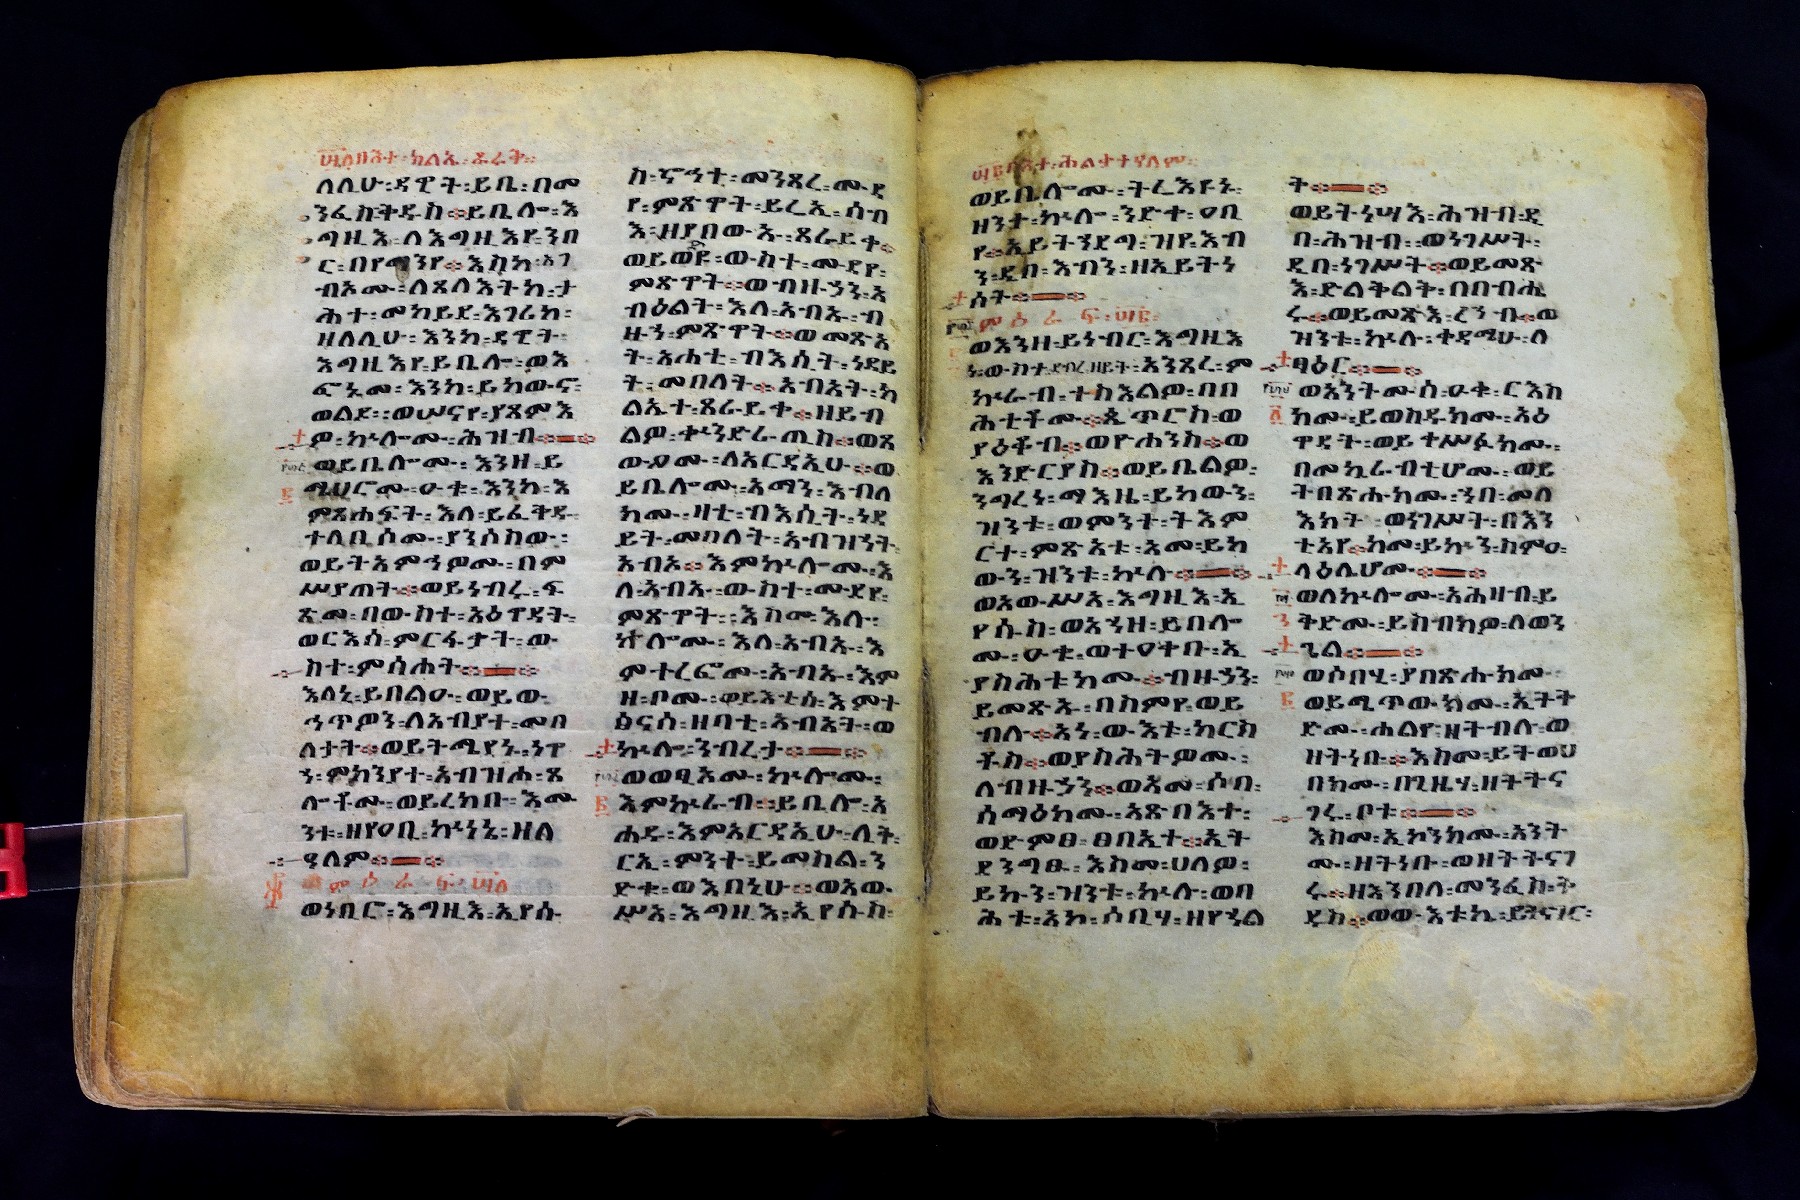 ለሊሁ፡ዳዊት፡ይቤ፡በመ
ንፈስ፡ቅዱስ፡ይቤሎ፡እ
ግዚእ፡ለእግዚእየ፡ንበ
ር፡በየማንየ፡እስከ፡አገ
ብኦሙ፡ለጸላእትከ፡ታ
ሕተ፡መከየደ፡እገሪከ፡
ዘለሊሁ፡እንከ፡ዳዊት፡
እግዚእየ፡ይቤሎ፡ወእ
ፎኑመ፡እንከ፡ይከውኖ፡
ወልደ፡ወሠናየ፡ያጸምእ
ዎ፡ኵሎሙ፡ሕዝብ
ወይቤሎሙ፡እንዘ፡ይ
ሜህሮሙ፡ዑቁ፡እንከ፡እ
ምጸሐፍት፡እለ፡ይፈቅዱ
ተለቢሶሙ፡ያንሶስው፡
ወይትአምኅዎሙ፡በም
ሥያጣት፡ወይነብሩ፡ፍ
ጽመ፡በውስተ፡አዕዋዳት፡
ወርእሰ፡ምርፋታት፡ው
ስተ፡ምሳሐት
እለኒ፡ይበልዑ፡ወይው
ኅጥዎን፡ለአብያተ፡መበ
ለታት፡ወይትሜየኑ፡ነዋ
ኀ፡ምክንያተ፡አብዝሖ፡ጸ
ሎቶሙ፡ወይረክቡ፡እሙ
ንቱ፡ዘየዐቢ፡ኵነኔ፡ዘለ
ዓለም
ምዕራፍ፡
ወነቢሮ፡እግዚእ፡ኢየሱ
የ፡ምጽዋት፡ይሬኢ፡ሰብ
እ፡ዘያበውኡ፡ጸራይቀ
ወይወድዩ፡ውስተ፡ሙዳየ፡
ምጽዋት፡ወብዙኃን፡አ
ብዕልት፡እለ፡አብኡ፡ብ
ዙኀ፡ምጽዋት፡ወመጽአ
ት፡አሐቲ፡ብእሲት፡ነዳይ
ት፡መበለት፡አብአት፡ክ
ልኤተ፡ጸራይቀ፡ዘይብ
ልዎ፡ቆንድራጢስ፡ወጸ
ውዖሙ፡ለአርዳኢሁ፡ወ
ይቤሎሙ፡አማን፡እብለ
ክሙ፡ዛቲ፡ብእሲት፡ነዳ
ይት፡መበለት፡አብዝኀት፡
አብአ፡እምኵሎሙ፡እ
ለ፡አብኡ፡ውስተ፡ሙዳየ፡
ምጽዋት፡እስመ፡እሉ፡
ኵሎሙ፡እለ፡አብኡ፡እ
ምተረፎሙ፡አብኡ፡እም
ዘ፡ቦሙ፡ወይእቲሰ፡እምተ
ፅናሰ፡ዘባቲ፡አብአት፡ወ
ኵሎ፡ንብረታ
ወወፂኦሙ፡ኵሎሙ፡
እምኵራብ፡ይቤሎ፡አ
ሐዱ፡እምአርዳኢሁ፡ሊቅ፡
ርኢ፡ምንት፡ይመስል፡ን
ድቁ፡ወእበኒሁ፡ወአው
ሥአ፡እግዚእ፡ኢየሱስ፡
ወይቤሎሙ፡ትሬእዩኑ፡
ዘንተ፡ኵሎ፡ንድቀ፡ዐቢ
የ፡አይትኀደግ፡ዝየ፡እብ
ን፡ዲበ፡እብን፡ዘኢይትነ
ሰት
ምዕራፍ፡
ወእንዘ፡ይነብር፡እግዚእ
ነ፡ውስተ፡ደብረ፡ዘይት፡አንጻረ፡ም
ኵራብ፡ተስእልዎ፡በባ
ሕቲቶሙ፡ጴጥሮስ፡ወ
ያዕቆብ፡ወዮሐንስ፡ወ
እንድርያስ፡ወይቤልዎ፡
ንግረነ፡ማእዜ፡ይከውን፡
ዝንቱ፡ወምንት፡ትእም
ርተ፡ምጽአቱ፡አመ፡ይከ
ውን፡ዝንቱ፡ኵሉ
ወአውሥአ፡እግዚእ፡ኢ
የሱስ፡ወአኀዘ፡ይበሎ
ሙ፡ዑቁ፡ወተዐቀቡ፡ኢ
ያስሕቱክሙ፡ብዙኃን፡
ይመጽኡ፡በስምየ፡ወይ
ብሉ፡አነ፡ውእቱ፡ክርስ
ቶስ፡ወያስሕትዎሙ፡
ለብዙኃን፡ወአመ፡ሶበ፡
ሰማዕክሙ፡አጽባእተ፡
ወድምፀ፡ፀባኢት፡ኢት
ደንግፁ፡እስመ፡ሀለዎ፡
ይኩን፡ዝንቱ፡ኵሉ፡ወባ
ሕቱ፡አኮ፡ሶቤሃ፡ዘየኃል
ቅ
ወይትነሣእ፡ሕዝብ፡ዲ
በ፡ሕዝብ፡ወነገሥት፡
ዲበ፡ነገሥት፡ወይመጽ
እ፡ድልቅልቅ፡በበብሔ
ሩ፡ወይመጽእ፡ረኀብ፡ወ
ዝንቱ፡ኵሉ፡ቀዳሚሁ፡ለ
ፃዕር
ወአንትሙሰ፡ዑቁ፡ርእሰ
ክሙ፡ይወስዱክሙ፡አዕ
ዋዳት፡ወይቀሥፉክሙ፡
በመኳራብቲሆሙ፡ወይ
ትበጽሑክሙ፡ኀበ፡መላ
እክት፡ወነገሥት፡በእን
ቲአየ፡ከመ፡ይኩን፡ስምዐ፡
ላዕሌሆሙ
ወለኵሎሙ፡አሕዛብ፡ይ
ቅድሙ፡ይስብክዎ፡ለወን
ጌል
ወሶበሂ፡ያበጽሑክሙ
ወይሜጥውክሙ፡ኢትት
ድሙ፡ሐልየ፡ዘትብሉ፡ወ
ዘትነቡ፡እስመ፡ይትወሀ
በክሙ፡በጊዜሃ፡ዘትትና
ገሩ፡ቦቱ
እስመ፡ኢኮንክሙ፡አንት
ሙ፡ዘትነቡ፡ወዘትትናገ
ሩ፡ዘእንበለ፡መንፈስ፡ቅ
ዱስ፡ወውእቱኬ፡ይትናገር፡